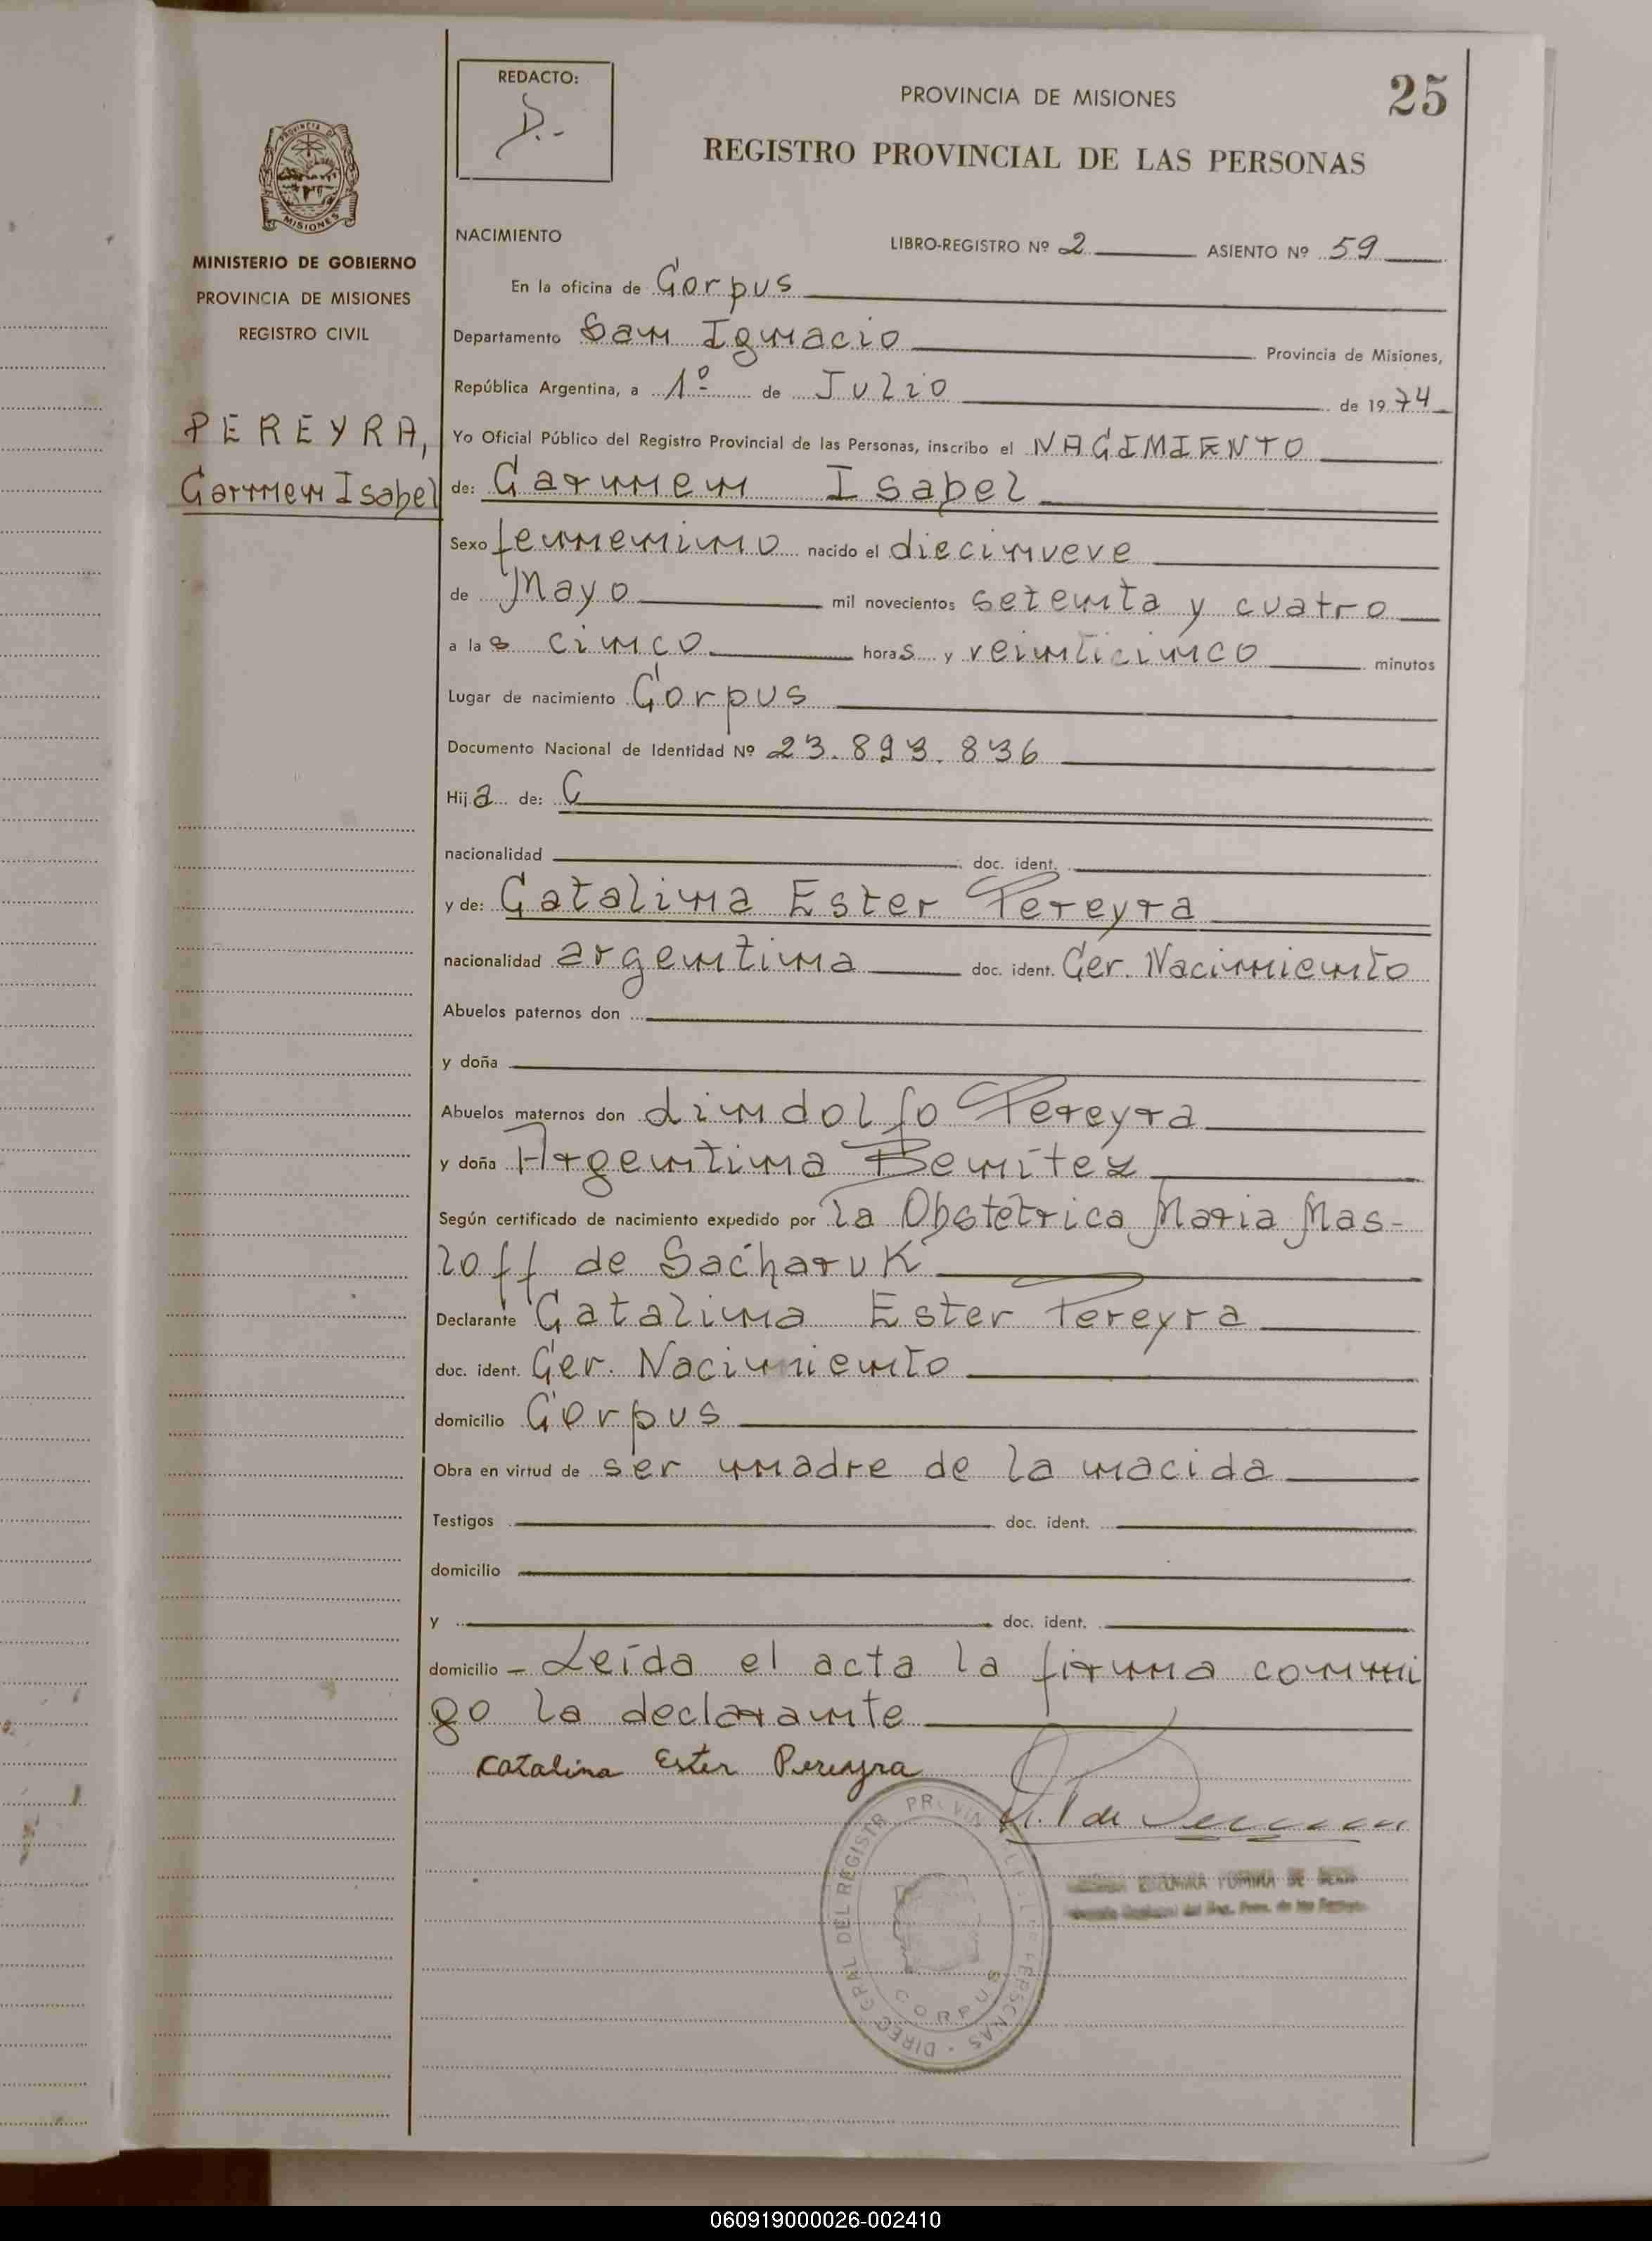 REDACTO:
PROVINCIA DE MISIONES
25
REGISTRO PROVINCIAL DE LAS PERSONAS
PROVINCIA DE
MISIONES
MINISTERIO DE GOBIERNO
PROVINCIA DE MISIONES
REGISTRO CIVIL
PEREYRA,
Carmen Isabel
NACIMIENTO
LIBRO-REGISTRO Nº 2 ASIENTO Nº 59
En la oficina de Corpus
Departamento San Ignacio Provincia de Misiones,
República Argentina, a 1º de Julio de 1974
Yo Oficial Público del Registro Provincial de las Personas, inscribo el NACIMIENTO
de: Carmen Isabel
Sexo femenino nacido el diecinueve
de Mayo mil novecientos setenta y cuatro
a las cinco horas y veinticinco minutos
Lugar de nacimiento Corpus
Documento Nacional de Identidad Nº 23.893.836
Hija de: C
nacionalidad doc. ident.
y de: Catalina Ester Pereyra
nacionalidad argentina doc. ident. Cer. Nacimiento
Abuelos paternos don
y doña
Abuelos maternos don Lindolfo Pereyra
y doña Argentina Benítez
Según certificado de nacimiento expedido por la Obstétrica María Mas-
loff de Sacharuk
Declarante Catalina Ester Pereyra
doc. ident. Cer. Nacimiento
domicilio Corpus
Obra en virtud de ser madre de la nacida
Testigos doc. ident.
domicilio
y doc. ident.
domicilio - Leída el acta la firma conmi
go la declarante
Catalina Ester Pereyra
DIREC. GRAL DEL REGISTR PROVIN DE LAS PERSONAS
CORPUS
060919000026-002410